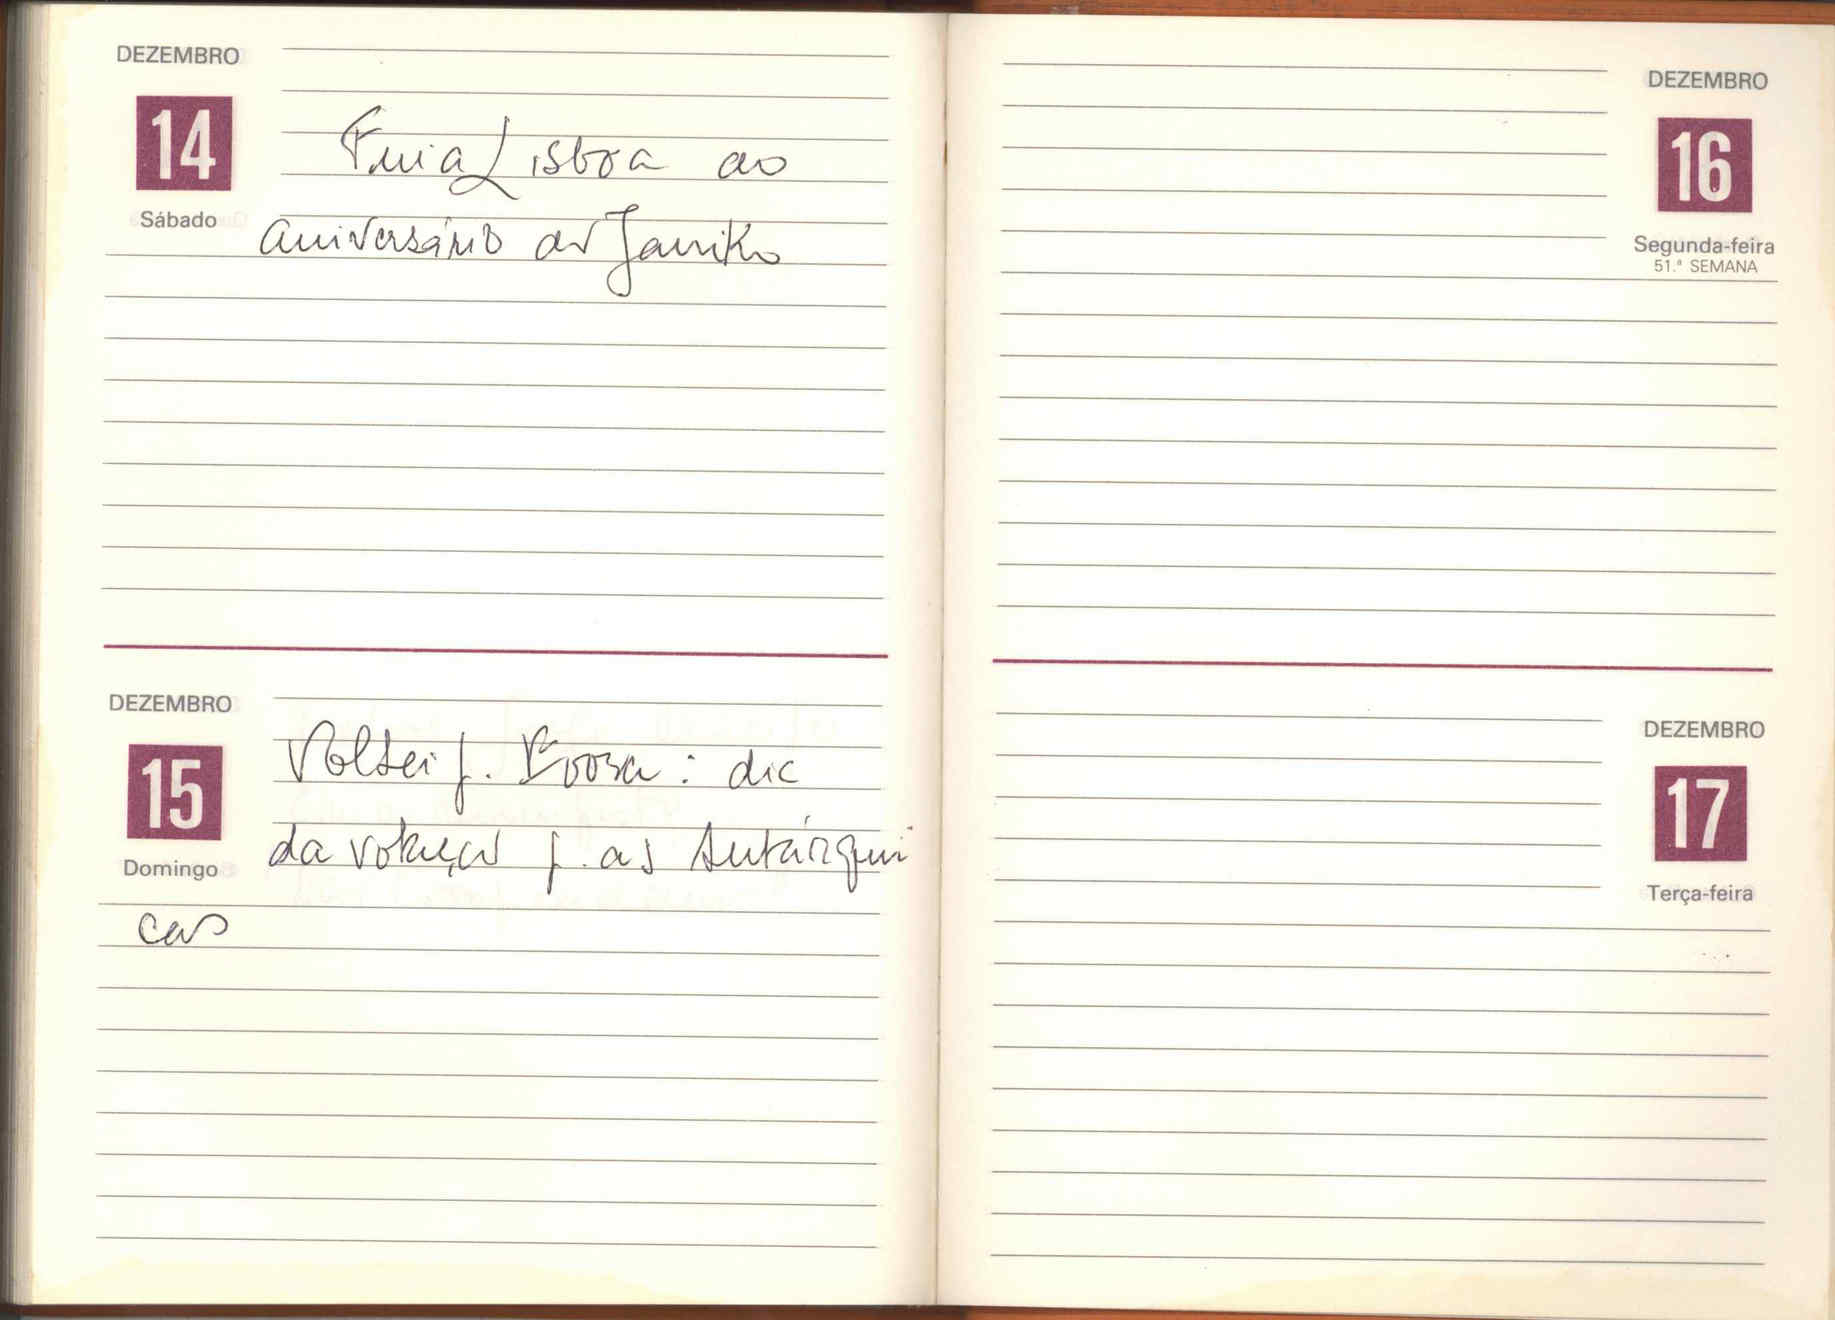 DEZEMBRO
14
Sábado
Fui a Lisboa ao
aniversário do Janiko
DEZEMBRO
15
Domingo
Voltei p. Évora: dia
da votação p. as Autárqui
cas
DEZEMBRO
16
Segunda-feira
51.ª SEMANA
DEZEMBRO
17
Terça-feira